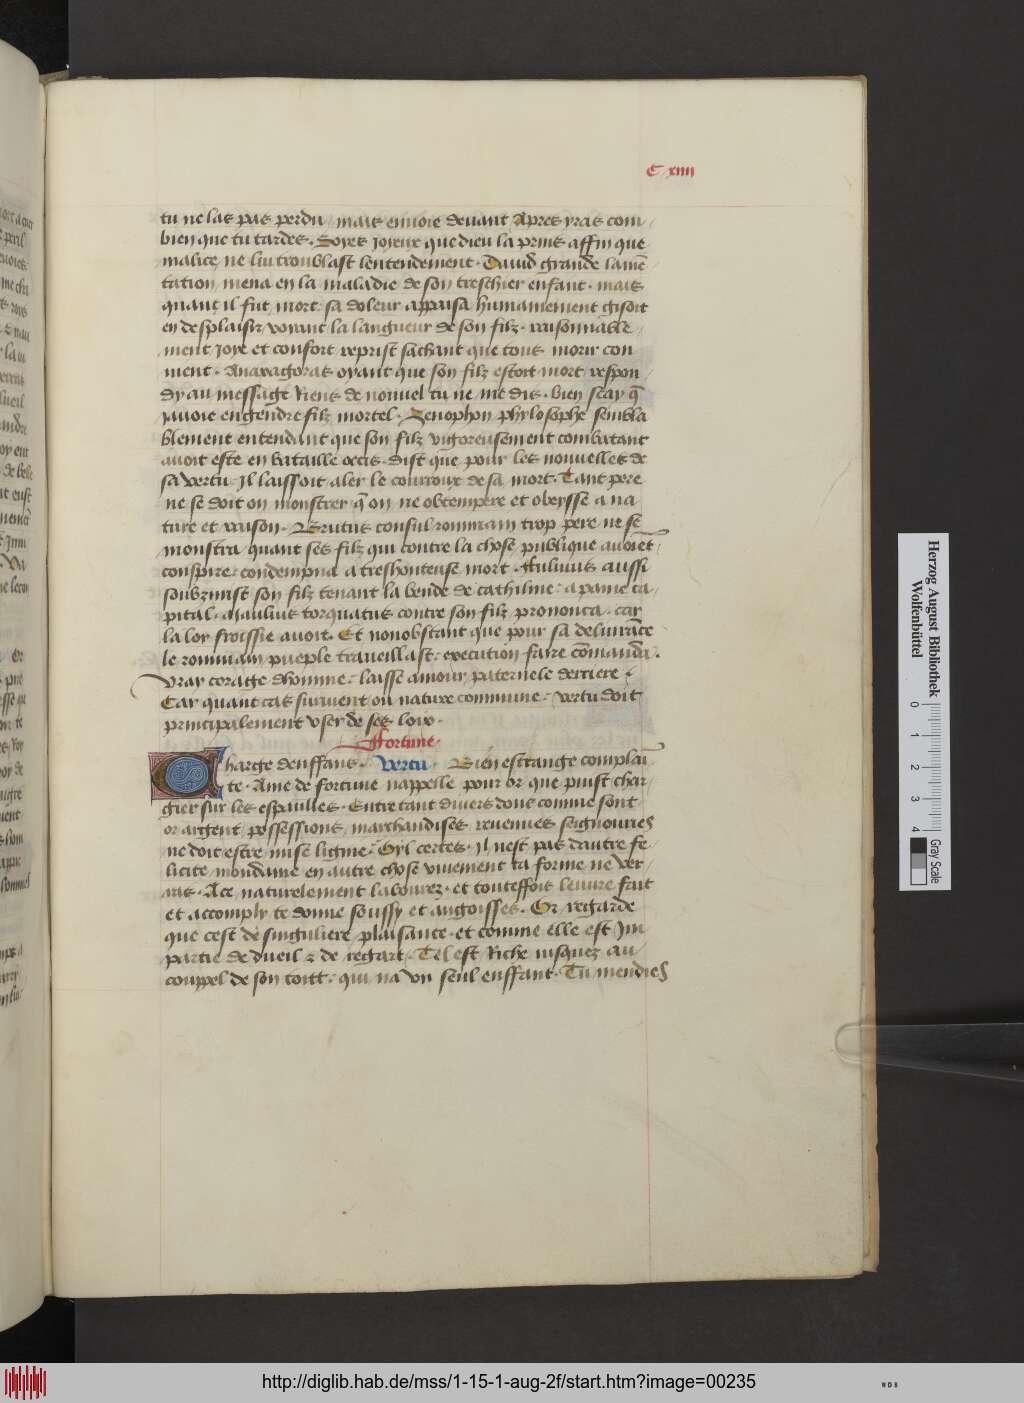 C xiiii
tu ne las pas perdu / mais enuoie deuant Apres yras com /
bien que tu tardes . Soyes joyeux que dieu la prins affin que
malice ne lui troublast lentendement . Dauid grande lamē
tation mena en la maladie de son treschier enfant . mais
quant il fut mort sa doleur appaisa humainement gisoit
en desplaisir voyant la langueur de son filz . raisonnable /
ment joye et confort reprist sachant que tous morir con
uient . Anaxagoras oyant que son filz estoit mort respon
dy au message Riens de nouuel tu ne me dis . bien scay q̄
jauoie engendre filz mortel . Zenophon phylosophe sembla
blement entendant que son filz vigoreusement combatant
auoit este en bataille occis . dist que pour les nouuelles de
sa vertu . Jl laissoit aler le courroux de sa mort . Tant pere
ne se doit on monstrer q̄ on ne obtempere et obeysse a na
ture et raison . Brutus consul rommain trop pere ne se
monstra quant ses filz qui contre la chose publique auoiēt /
conspire . condempna a treshonteuse mort . ffuluius aussi
soubzmist son filz tenant la bende de cathiline . a paine ca /
pital . Manlius torquatus contre son filz prononca . car
la loy froissie auoit . Et nonobstant que pour sa deliurāce
le rommain pueple trauaillast . execution faire cōmanda .
Vray corage dhomme . laisse amour paternele derriere .
Car quant cas suruient ou nature commune . vertu doit
principalement vser de ses loix .
ffortune .
Charge denffans . Vertu . Bien estrange complai
te . Ame de fortune nappelle pour or que puist char
gier sur les espaulles . Entre tant diuers dont comme sont
or argent possessions marchandises reuenues seignouries
ne doit estre mise lignie . Oyl certes . Jl nest pas dautre fe /
licite mondaine en autre chose viuement ta forme ne ver
ras . Ace naturelement labourez . et touteffois leuure fait
et accomply te donne soussy et angoisses . Or regarde
que cest de singuliere plaisance . et comme elle est Jm
partie de dueil z de regart . Tel est Riche jusquez au
couppel de son toitt . qui na vn seul enffant . Tu mendies
Herzog August Bibliothek
Wolfenbüttel
0 1 2 3 4
Gray Scale
http://diglib.hab.de/mss/1-15-1-aug-2f/start.htm?image=00235